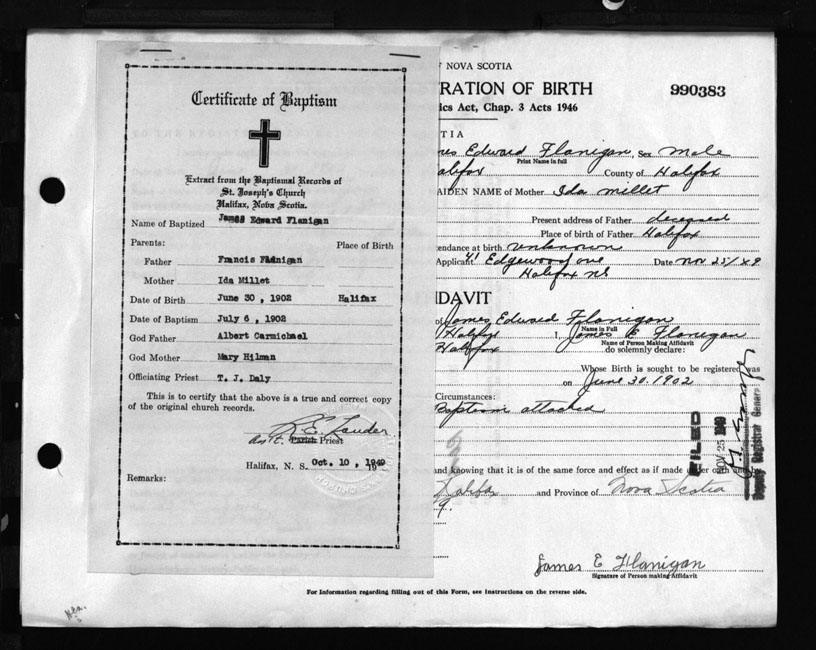 Certificate of Baptism
Extract from the Baptismal Records of
St. Joseph's Church
Halifax, Nova Scotia.
Name of Baptized James Edward Flanigan
Parents: Place of Birth
Father Francis Flanigan
Mother Ida Millet
Date of Birth June 30, 1902 Halifax
Date of Baptism July 6, 1902
God Father Albert Carmichael
God Mother Mary Hilman
Officiating Priest T. J. Daly
This is to certify that the above is a true and correct copy
of the original church records.
R. E. Lauder
Ass't. Parish Priest
Halifax, N. S. Oct. 10, 1949
19
Remarks:
NOVA SCOTIA
RATION OF BIRTH 990383
ics Act, Chap. 3 Acts 1946
TIA
mes Edward Flanigan, Sex Male
Print Name in full
alifax County of Halifax
AIDEN NAME of Mother Ida Millet
Present address of Father deceased
Place of birth of Father Halifax
endance at birth unknown
Applicant 41 Edgewood ave Date Nov 25/49
Halifax NS
IDAVIT
of James Edward Flanigan
Name in Full
Halifax I, James E Flanigan
Name of Person Making Affidavit
Halifax do solemnly declare:
Whose Birth is sought to be registered was
on June 30, 1902
Circumstances:
Baptism attached
FILED
NOV 25 1949
Deputy Registrar General
and knowing that it is of the same force and effect as if made under oath and
Halifax and Province of Nova Scotia
9.
James E Flanigan
Signature of Person making Affidavit
For Information regarding filling out of this Form, see Instructions on the reverse side.